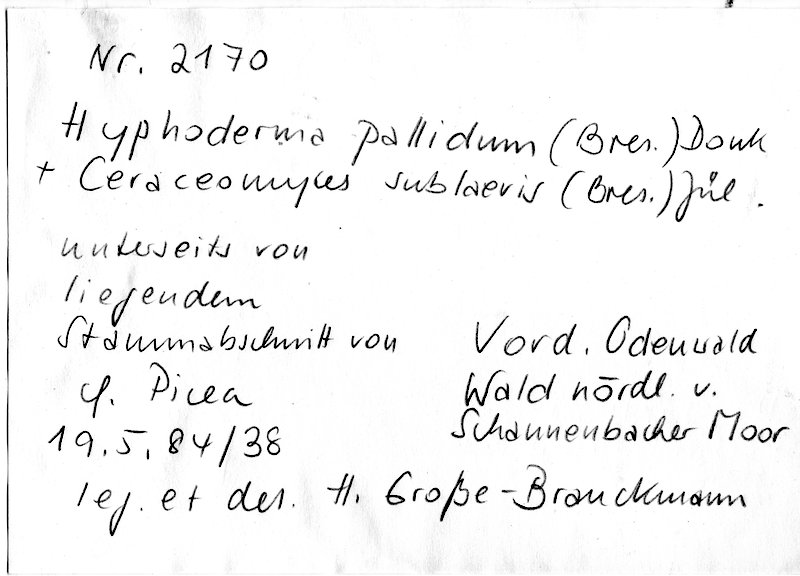 Nr. 2170
Hyphoderma pallidum (Bres.) Donk
+ Ceraceomyces sublaevis (Bres.) Jül.
unterseits von
liegendem
Stammabschnitt von
cf. Picea
19.5.84/38
Vord. Odenwald
Wald nördl. v.
Schannenbacher Moor
leg. et det. H. Große-Brauckmann